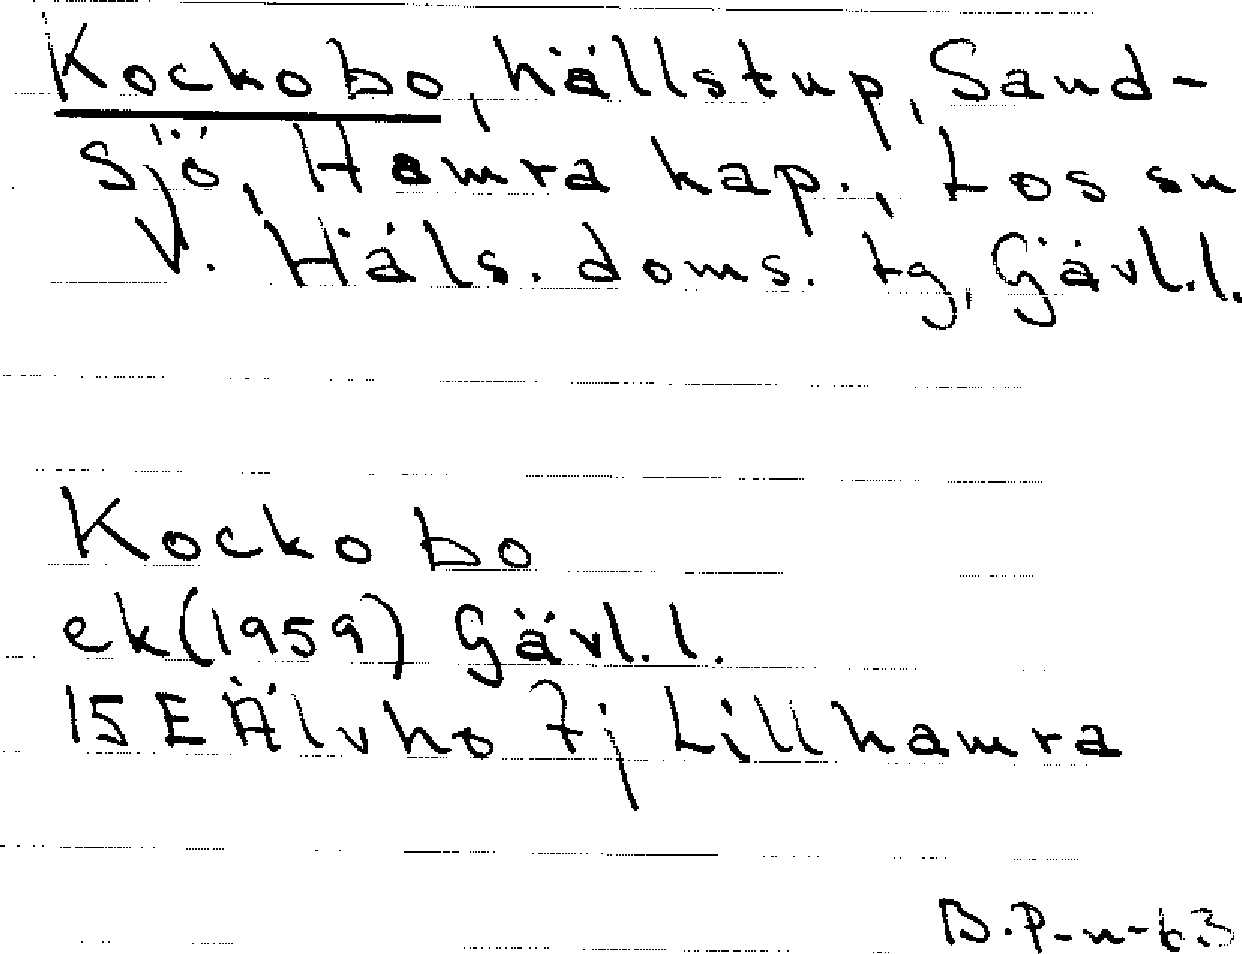 Kockobo, hällstup, Sand-
sjö, Hamra kap., Los sn
V. Häls. doms. tg, Gävl.l.
Kockobo
ek (1959) Gävl.l.
15 E Älvho 7j Lillhamra
B.P-n-63